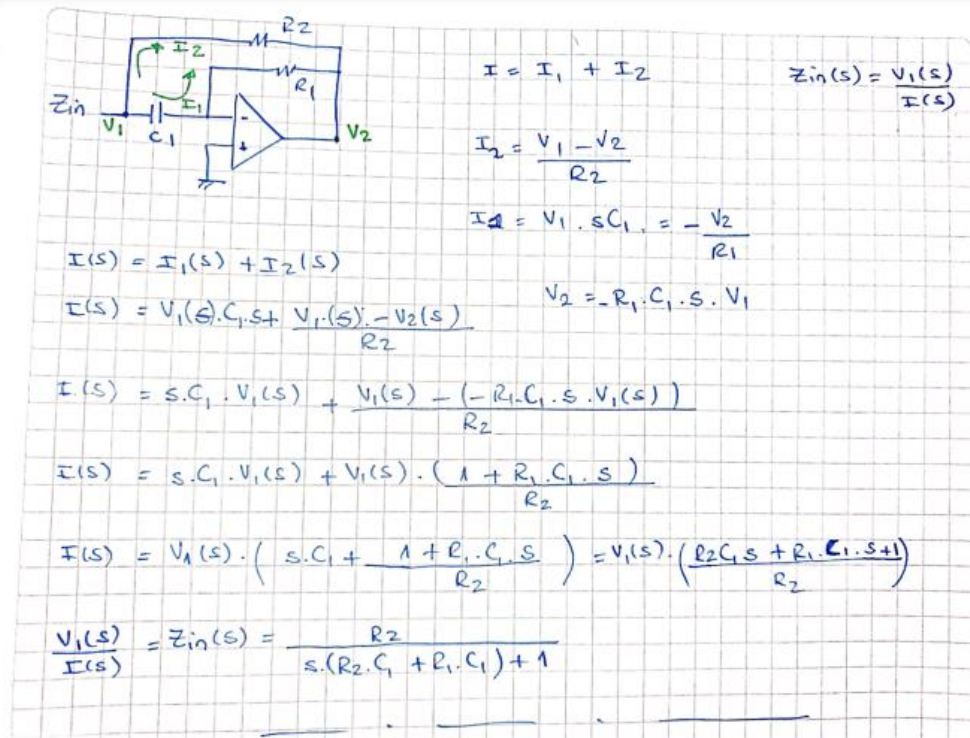 R2
I2
R1
Zin
I1
V1
C1
-
+
V2
I = I1 + I2
Zin(s) = V1(s) / I(s)
I2 = V1 - V2 / R2
I1 = V1 . sC1 . = - V2 / R1
V2 = -R1 . C1 . s . V1
I(s) = I1(s) + I2(s)
I(s) = V1(s) . C1 . s + V1.(s). - V2(s) / R2
I.(s) = s.C1 . V1(s) + V1(s) - (-R1.C1 . s . V1(s)) / R2
I(s) = s.C1 . V1(s) + V1(s) . (1 + R1 . C1 . s) / R2
I(s) = V1(s) . ( s.C1 + 1 + R1 . C1 . s / R2 ) = V1(s) . ( R2C1s + R1 . C1 . s + 1 / R2 )
V1(s) / I(s) = Zin(s) = R2 / s.(R2.C1 + R1.C1) + 1